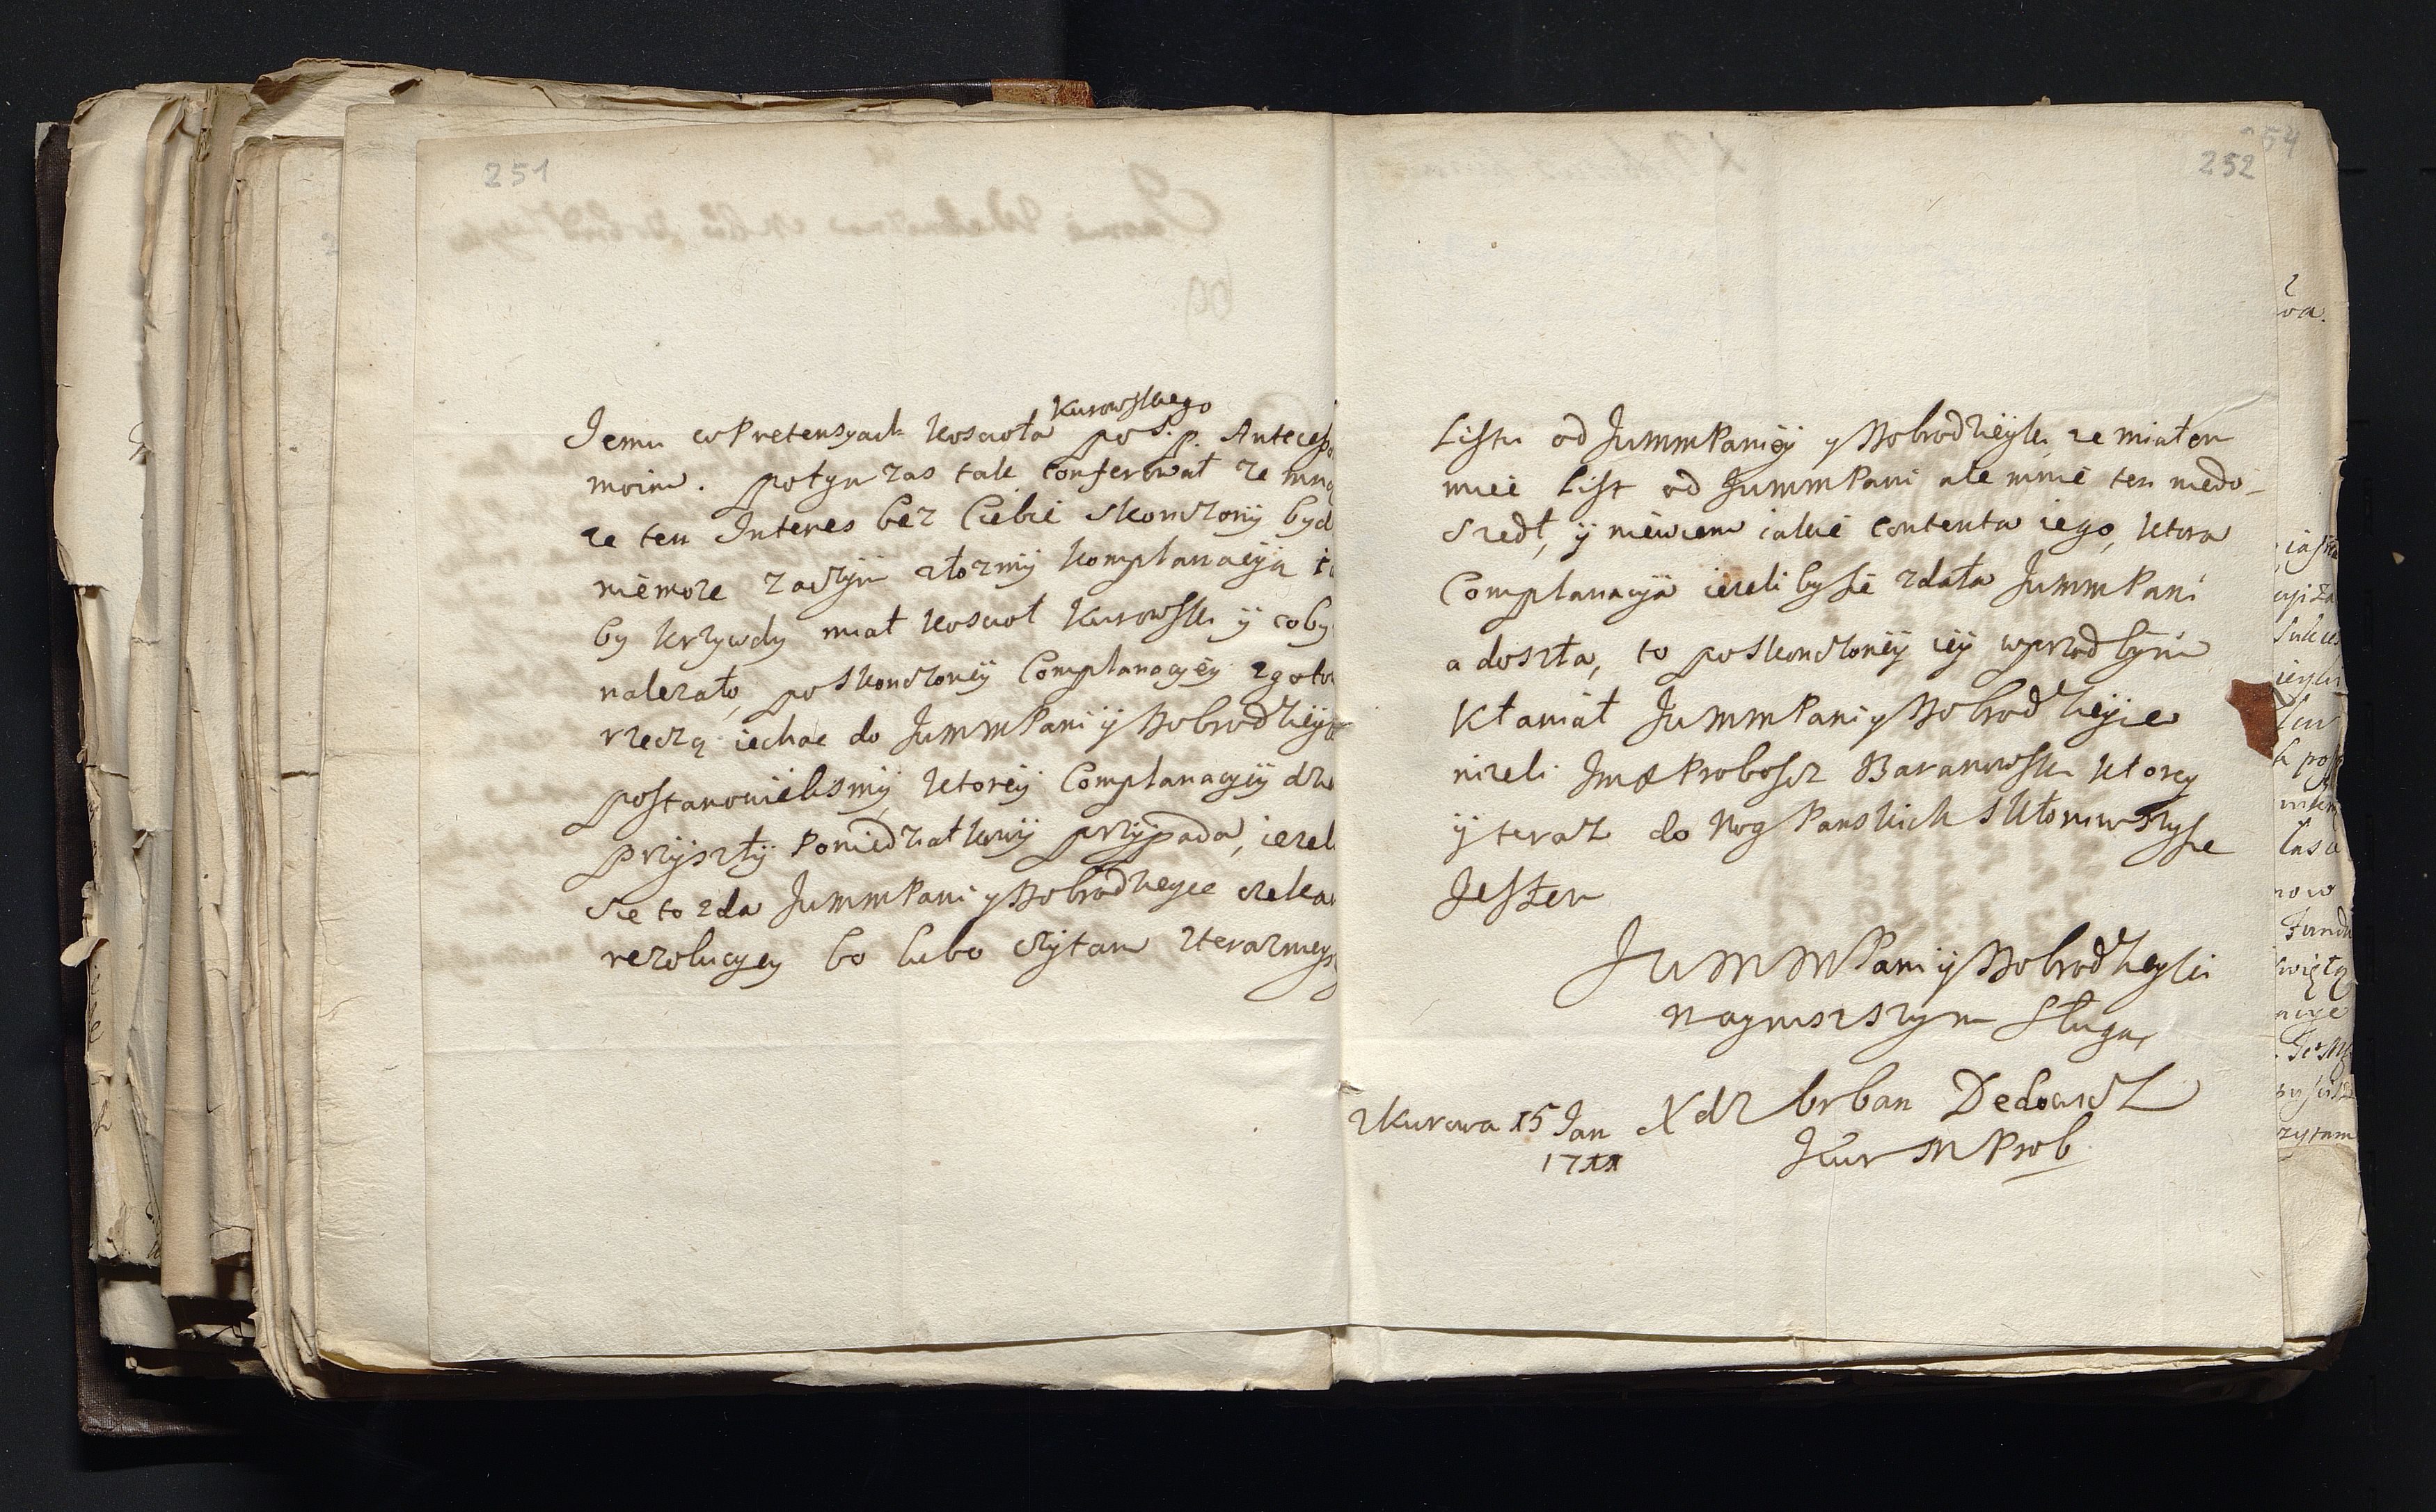 251
Kurowskiego
Jemu w Pretensyach koscioła po S. p. Anteces
moim. potym zas tak conferował ze mną
ze ten Interes bez Ciebie skonczony byd
niemoze zaczym złozmy komplanacyją
by krzywdy miał kosciol Kurowski ÿ coby
nalezało, poskonczoney Complanacyey zgoto
rzeczą iechac do JummPani ÿ Dobrodzieyki
postanowilismÿ, ktorÿ Complanacyÿ dz
przÿszłÿ Poniedziałkowÿ przÿpada, iezel
sie to zda JummPani y Dobrodzieyce czekam
rezolucyey bo lubo czÿtam zterazniey
252
54
Listu od JummPanieÿ y Dobrodzieyki ze miałem
miec List od JummPani ale mnie ten niedo-
szedł, ÿ niewiem iakie contenta iego, ktora
Complanacyia iezeli by sie zdała JummPani
a doszła, to poskonczonÿ iÿ wprzod bÿm
Kłaniał JummPani y Dobrodzieyce
nizeli Jmć Proboscz Baranowski ktorey
ÿ teraz do Nog Panskich skłoniwszysie
Jestem
JummPani ÿ Dobrodzieyki
Nayniszszym Sługą
Xdz Urban Dedowicz
Kur M Prob
zKurowa 15 Jan
17